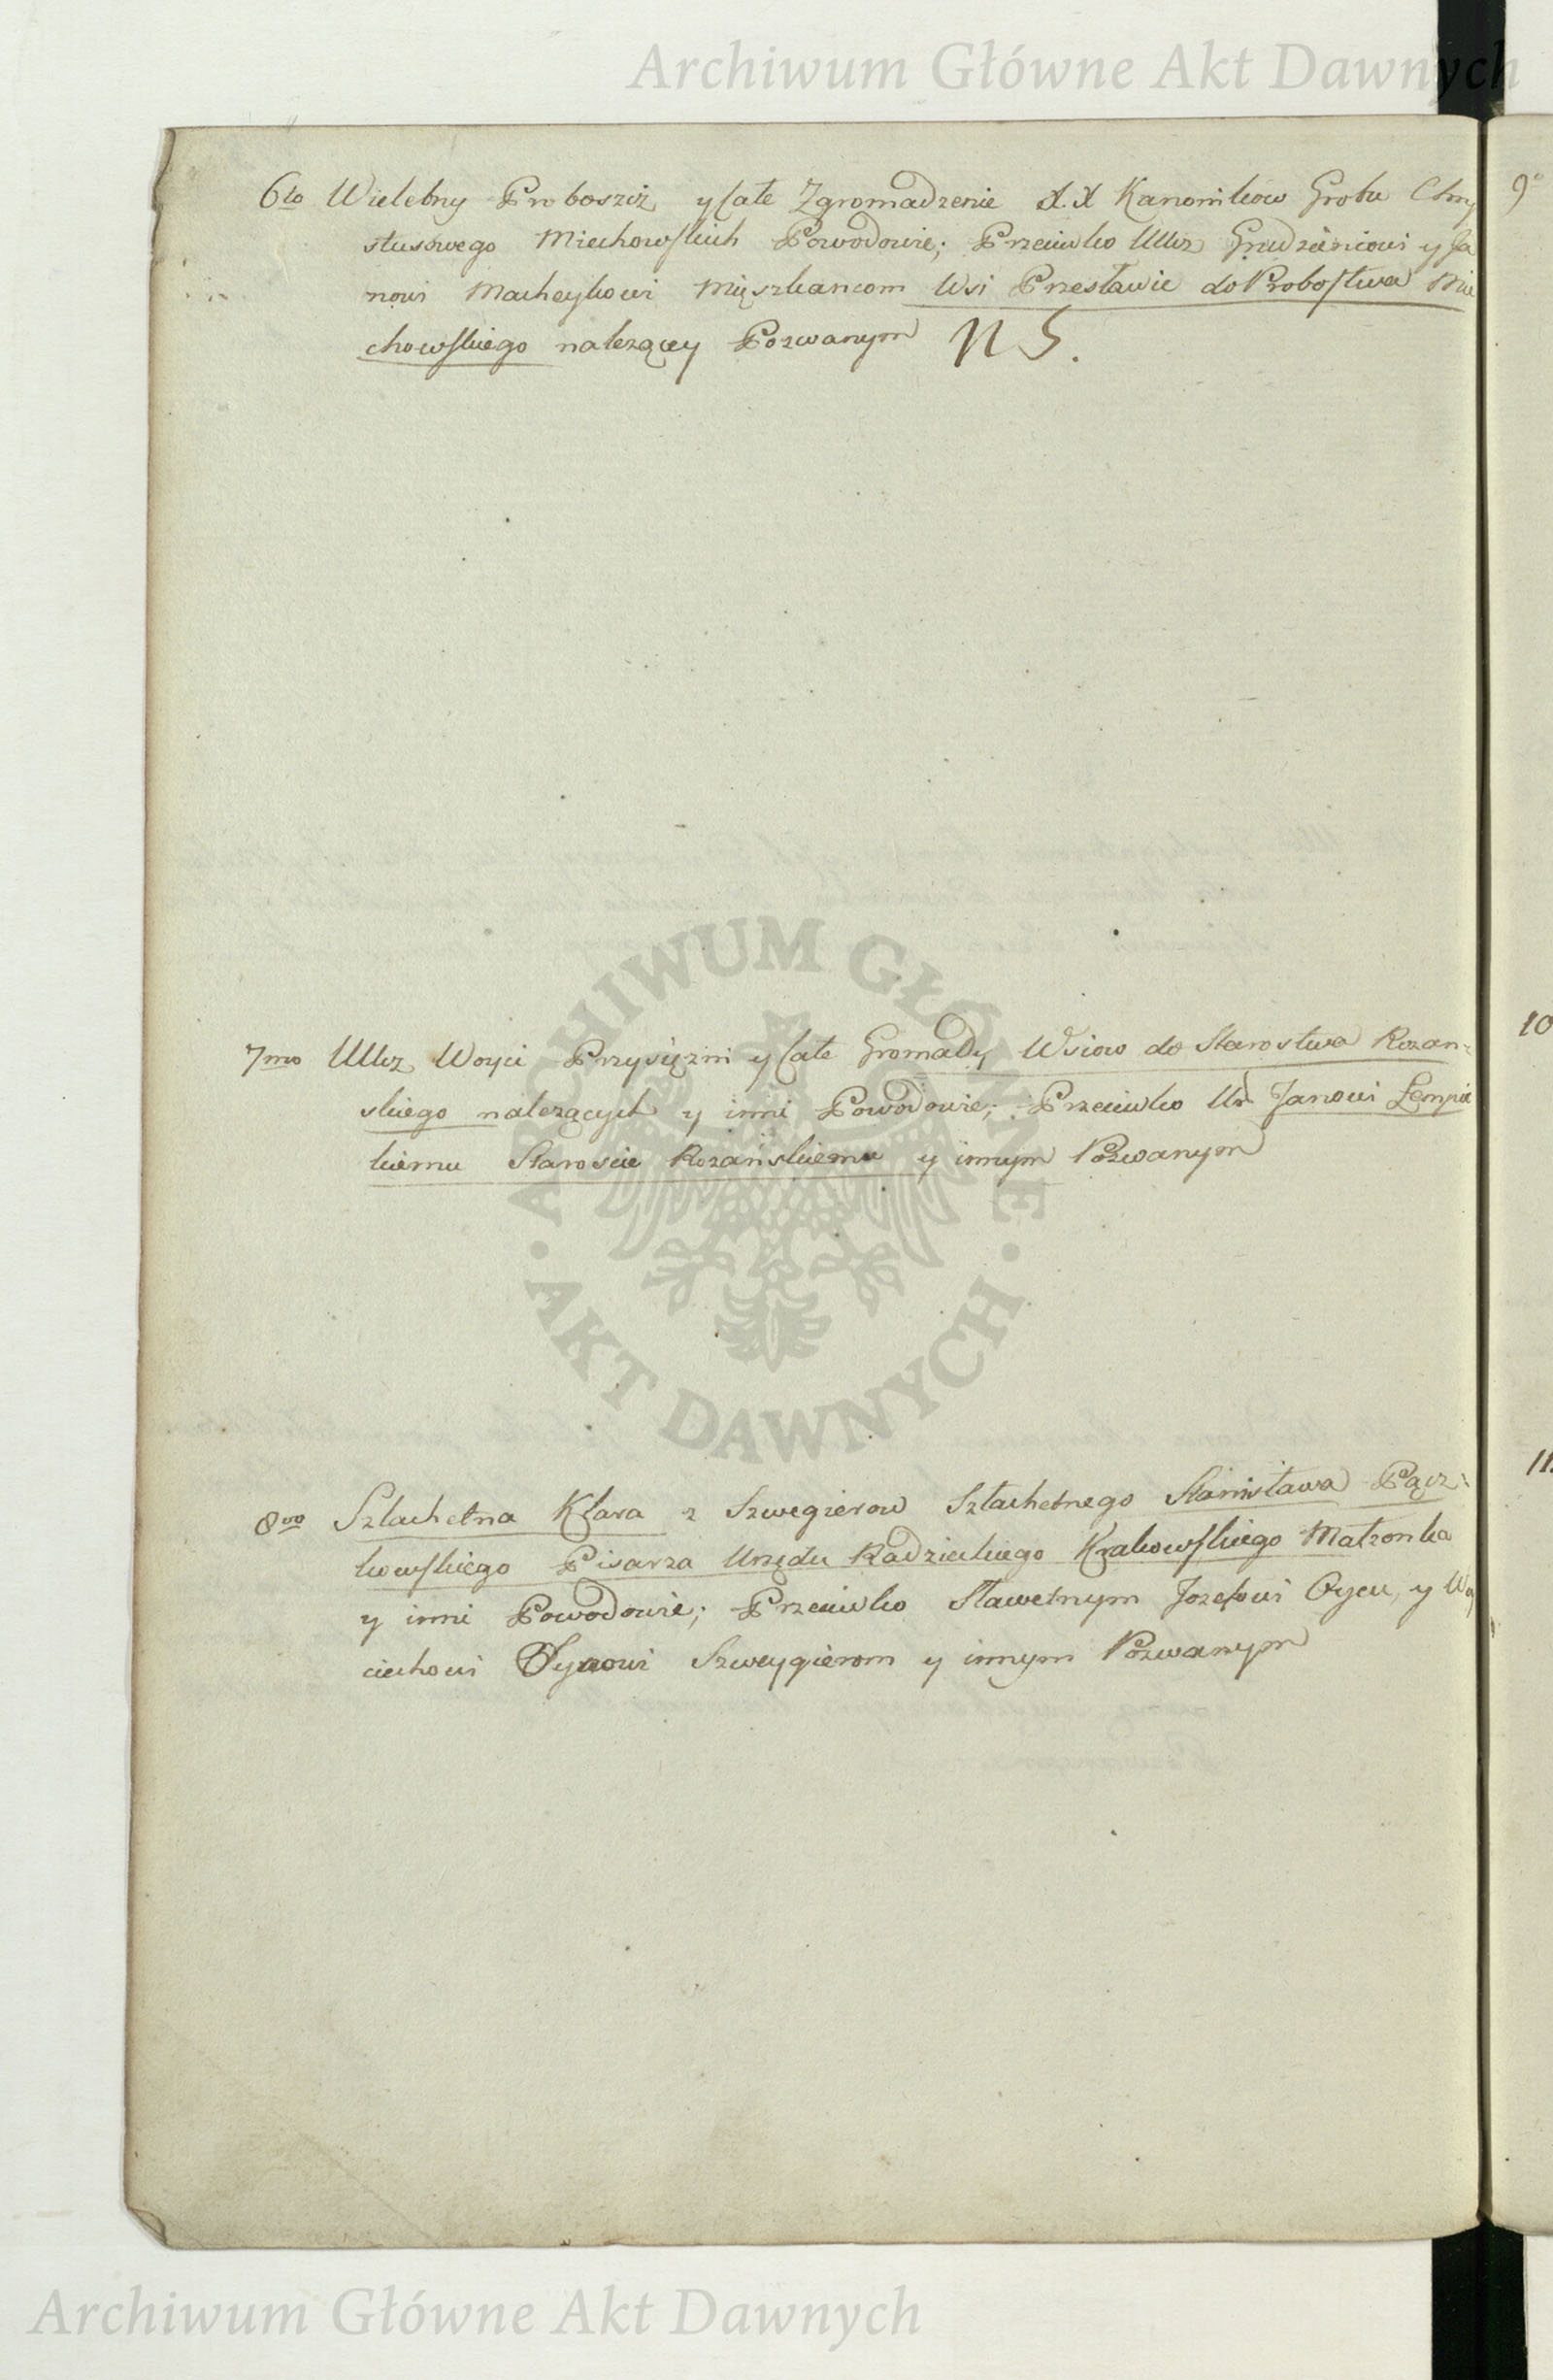 Archiwum Główne Akt Dawnych
6to Wielebny Proboszcz y Całe Zgromadzenie X.X Kanonikow Grobu Chry
stusowego Miechowskich Powodowie; Przeciwko Uczc Grudzieniowi y Ja
nowi Macheykowi Mięszkancom Wsi Przesławic do Probostwa Mie
chowskiego nalezącey Pozwanym N 5.
7mo Uczc Woyci Przysięzni y Całe Gromady Wsiow do Starostwa Rozan-
skiego nalezących y inni Powodowie; Przeciwko Ur Janowi Lempic
kiemu Staroscie Rozańskiemu y innym Pozwanym
8vo Szlachetna Klara z Szwegierow Szlachetnego Stanisława Pącz-
kowskiego Pisarza Urzędu Radzieckiego Krakowskiego Małzonka
y inni Powodowie; Przeciwko Sławetnym Jozefowi Oycu, y Woy
ciechowi Synowi Szweygierom y innym Pozwanym
9o
10
11.
ARCHIWUM GŁÓWNE · AKT DAWNYCH ·
Archiwum Główne Akt Dawnych